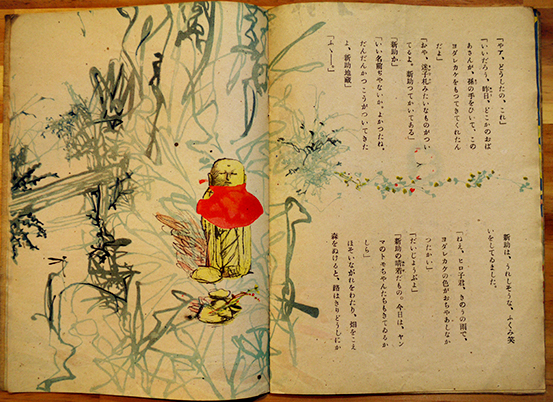 「やア、どうしたの、これ」
「いいだろう、昨日、どこかのおば
あさんが、孫の手をひいて、この
ヨダレカケをもつてきてくれたん
だよ」
「おや、迷子札みたいなものがつい
てるよ、新助つてかいてある」
「新助か」
「いい名前ぢやないか。よかつたね、
だんだんかつこうがついてきた
よ、新助地蔵」
「ふゝー。」
新助は、うれしそうな、ふくみ笑
いをしてみました。
「ねえ、ヒロ子君、きのうの雨で、
ヨダレカケの色がおちやあしなか
つたかい」
「だいじょうぶよ」
「新助の晴着だもの。今日は、ヤン
マのトモちやんたちもきてゐるか
しら」
ほそいながれをわたり、畑をこえ
森をぬけると、路はきりどうしにか